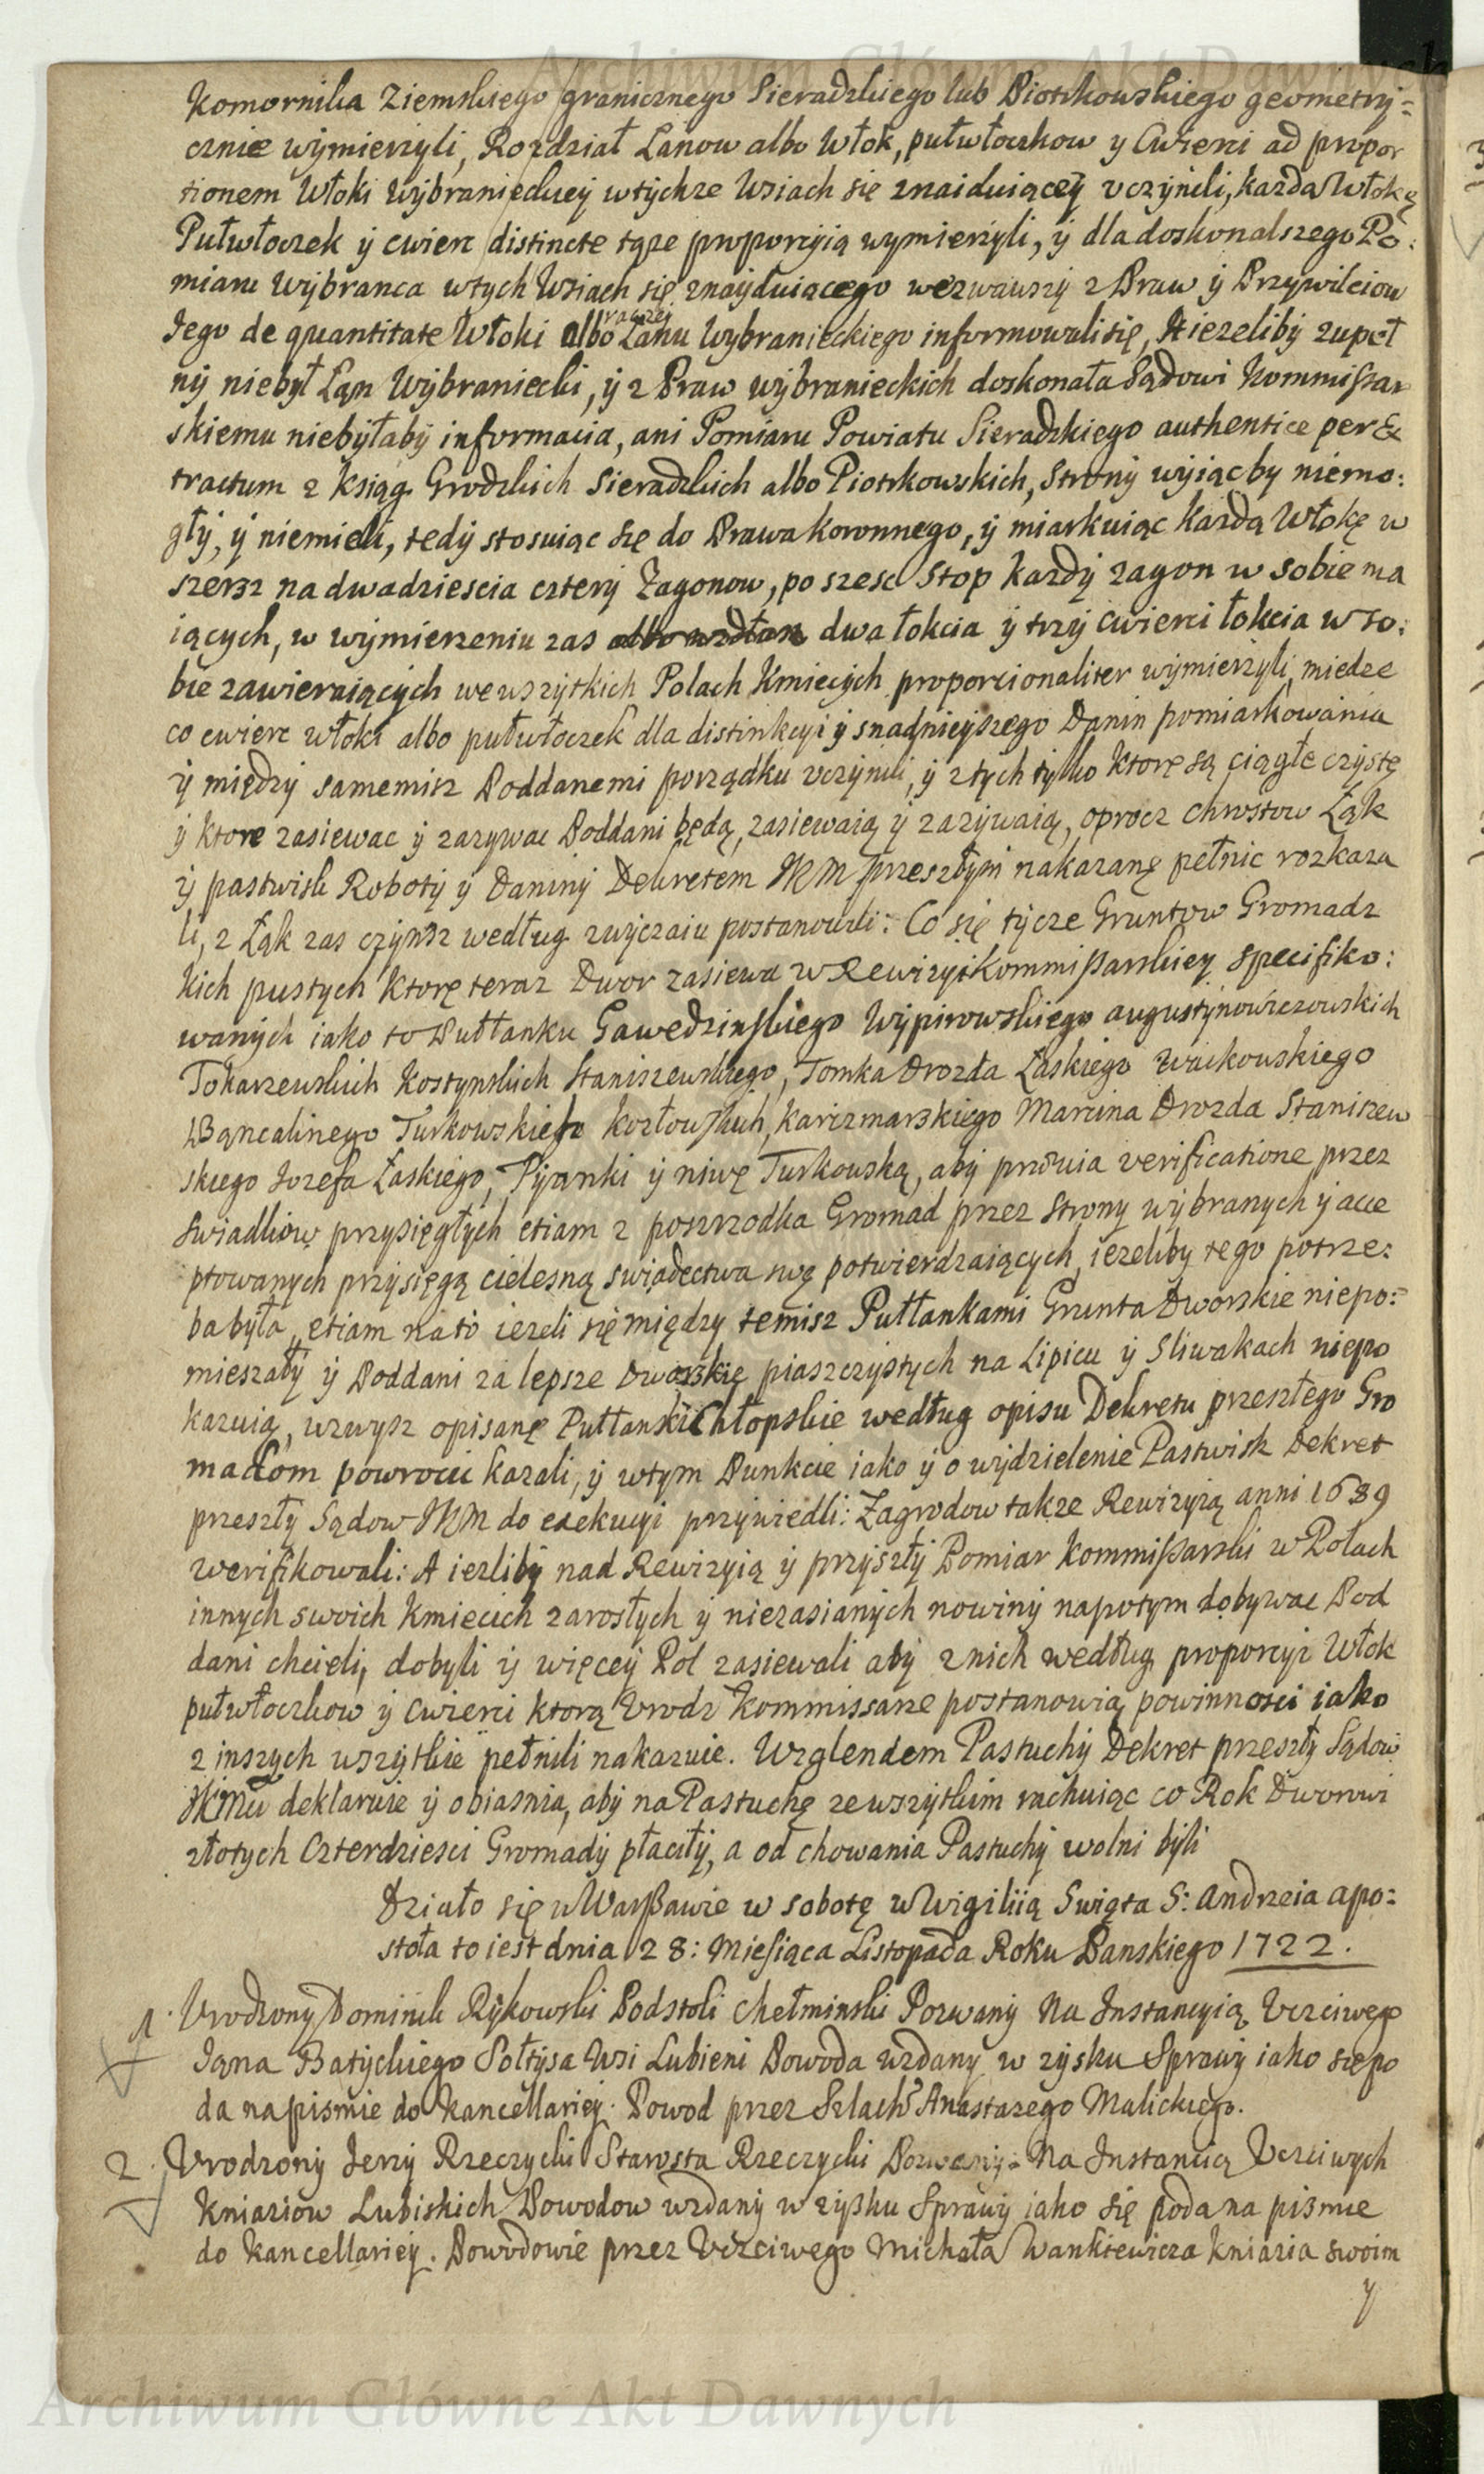 Archiwum Główne Akt Dawnych
Komornika Ziemskiego granicznego Sieradzkiego lub Piotrkowskiego geometry=
cznie wÿmierzÿli, Rozdział Łanow albo Włok, pułwłoczkow y Cwierci ad propor
tionem Włoki Wÿbranieckieÿ wtÿchze Wsiach się znaiduiąceÿ vczÿnili, kazdą Włokę
Pułwłoczek ÿ cwierc distincte tąze proporcÿią wymierzÿli, ÿ dla doskonalszego Po:
miaru Wÿbranca wtych Wsiach się znaÿduiącego wezwawszÿ z Praw ÿ Przywileiow
Jego de quantitate Włoki albo raczeÿ Łanu Wybranieckiego informowali się, A iezeliby zupeł
nÿ niebÿł Łąn Wÿbraniecki, ÿ z Praw wÿbranieckich doskonała Sądowi Kommissar
skiemu niebÿłabÿ informacia, ani Pomiaru Powiatu Sieradzkiego authentice per Ex
tractum z Ksiąg Grodzkich Sieradzkich albo Piotrkowskich, Stronÿ wÿiąc by niemo:
głÿ, ÿ niemieli, tedÿ stosuiąc się do Prawa koronnego, ÿ miarkuiąc Kazdą Włokę w
szersz na dwadziescia czterÿ Zagonow, po szesc Stop Kazdÿ zagon w sobie ma
iących, w wÿmierzeniu zas albo wzdłuz dwa łokcia ÿ trzÿ cwierci łokcia w so:
bie zawieraiącÿch we wszÿtkich Polach Kmiecÿch proporcionaliter wÿmierzÿli, miedze
co cwierc włoki albo pułwłoczek dla distinkcyi ÿ snadnieÿszego Danin pomiarkowania
ÿ międzÿ samemisz Poddanemi porządku vczÿnili, ÿ z tych tylko ktorę są ciągłe czÿstę
ÿ ktore zasiewac ÿ zazywac Poddani będą, zasiewaią ÿ zazÿwaią, oprocz chrostow Łąk
ÿ pastwisk Robotÿ ÿ Daninÿ Dekretem JKM przeszłÿm nakazanę pełnic rozkaza
li, z Łąk zas czÿnsz według zwÿczaiu postanowili: Co się tÿcze Gruntow Gromadz
kich pustych Ktorę teraz Dwor zasiewa w Rewizyi Kommissarskieÿ specifiko:
wanÿch iako to Pułłanku Gawedzinskiego Wÿpirowskiego augustÿnowiczowskich
Tokarzewskich Kostynskich Staniszewskiego, Tomka Drozda Łaskiego
Turkowskiego Kozłowskich, Karczmarskiego Marcina Drozda Staniszew
skiego Jozefa Łaskiego, Pÿanki ÿ niwę Turkowską, abÿ prżvia verificatione przez
Swiadkow przysięgłÿch etiam z poszrzodka Gromad przez Stronÿ wÿbranych ÿ acce
ptowanych przÿsięgą cielesną swiadectwa swę potwierdzaiących, iezeliby tego potrze:
ba była, etiam na to iezeli się między temisz Pułłankami Grunta Dworskie niepo:
mieszałÿ ÿ Poddani za lepsze Dworskię piaszczystych na Lipicu ÿ Sliwakach niepo
kazuią, wzwysz opisanę Pułłanki Chłopskie według opisu Dekretu przeszłego Gro
madom powrocic kazali, ÿ wtym Punkcie iako ÿ o wÿdzielenie Pastwisk Dekret
przeszłÿ Sądow JKM do exekucyi przÿwiedli: Zagrodow takze Rewizyią anni 1689
werifikowali: A iezlibÿ nad Rewizyią ÿ przÿszłÿ Pomiar Kommissarski w Polach
innych swoich Kmiecich zarosłych ÿ niezasianÿch nowinÿ napotym dobywac Pod
dani chcieli, dobyli ÿ więceÿ Pol zasiewali abÿ z nich według proporcyi Włok
pułwłoczkow ÿ Cwierci ktorą Vrodz Kommissarze postanowią powinnosci iako
z inszych wszytkie pełnili nakazuie. Wzglendem Pastuchÿ Dekret przeszłÿ Sądow
JKMci deklaruie ÿ obiasnia, abÿ na Pastuchę ze wszÿtkim rachuiąc co Rok Dworowi
złotych Czterdziesci Gromadÿ płaciłÿ, a od chowania Pastuchÿ wolni bÿli
Działo się w Warszawie w Sobotę w Wigiliią Swięta S: Andrzeia apo:
stoła to iest dnia 28: Miesiąca Listopada Roku Panskiego 1722.
1. Vrodzony Dominik Rÿkowski Podstoli Chełminski Pozwanÿ Na Instancyią Vczciwego
Jąna Batyckiego Sołtÿsa Wsi Lubieni Powoda wzdanÿ w zÿsku Sprawÿ iako się po
da na pismie do Kancellarieÿ. Powod przez Szlach Anastazego Malickiego.
2. Vrodzonÿ Jerzÿ Rzeczycki Starosta Rzeczycki Pozwanÿ. Na Instancią Vczciwych
Kniaziow Lubiskich Powodow wzdanÿ w zysku Sprawÿ iako się poda na pismie
do Kancellarieÿ. Powodowie przez Vczciwego Michała Wankiewicza Kniazia swoim
y
Archiwum Główne Akt Dawnych